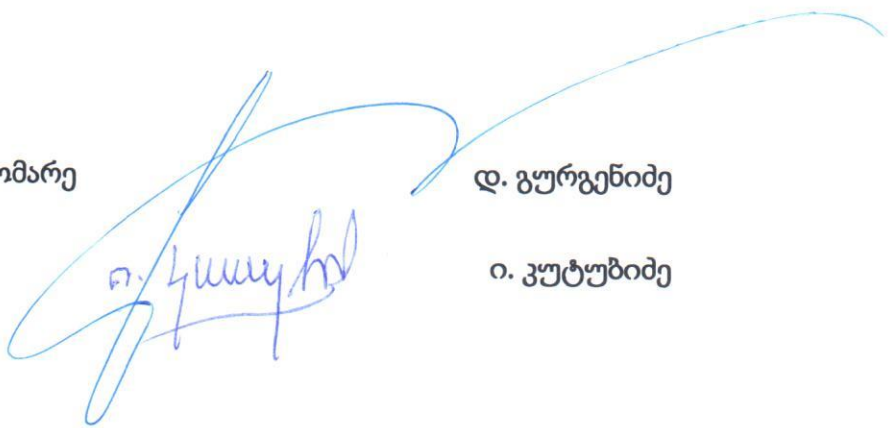 ომარე დ. გურგენიძე
ი. კუტუბიძე